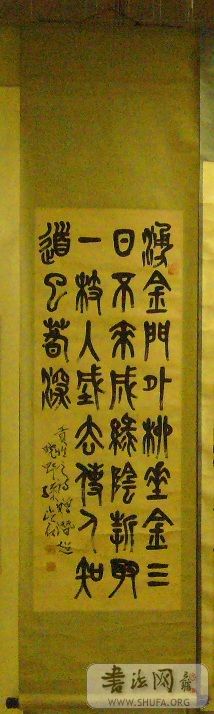 湧金門外柳垂金三
日不來成綠陰折取
一枝入城去使人知
道已春深
貢性之詩
書法网
WWW.SHUFA.ORG